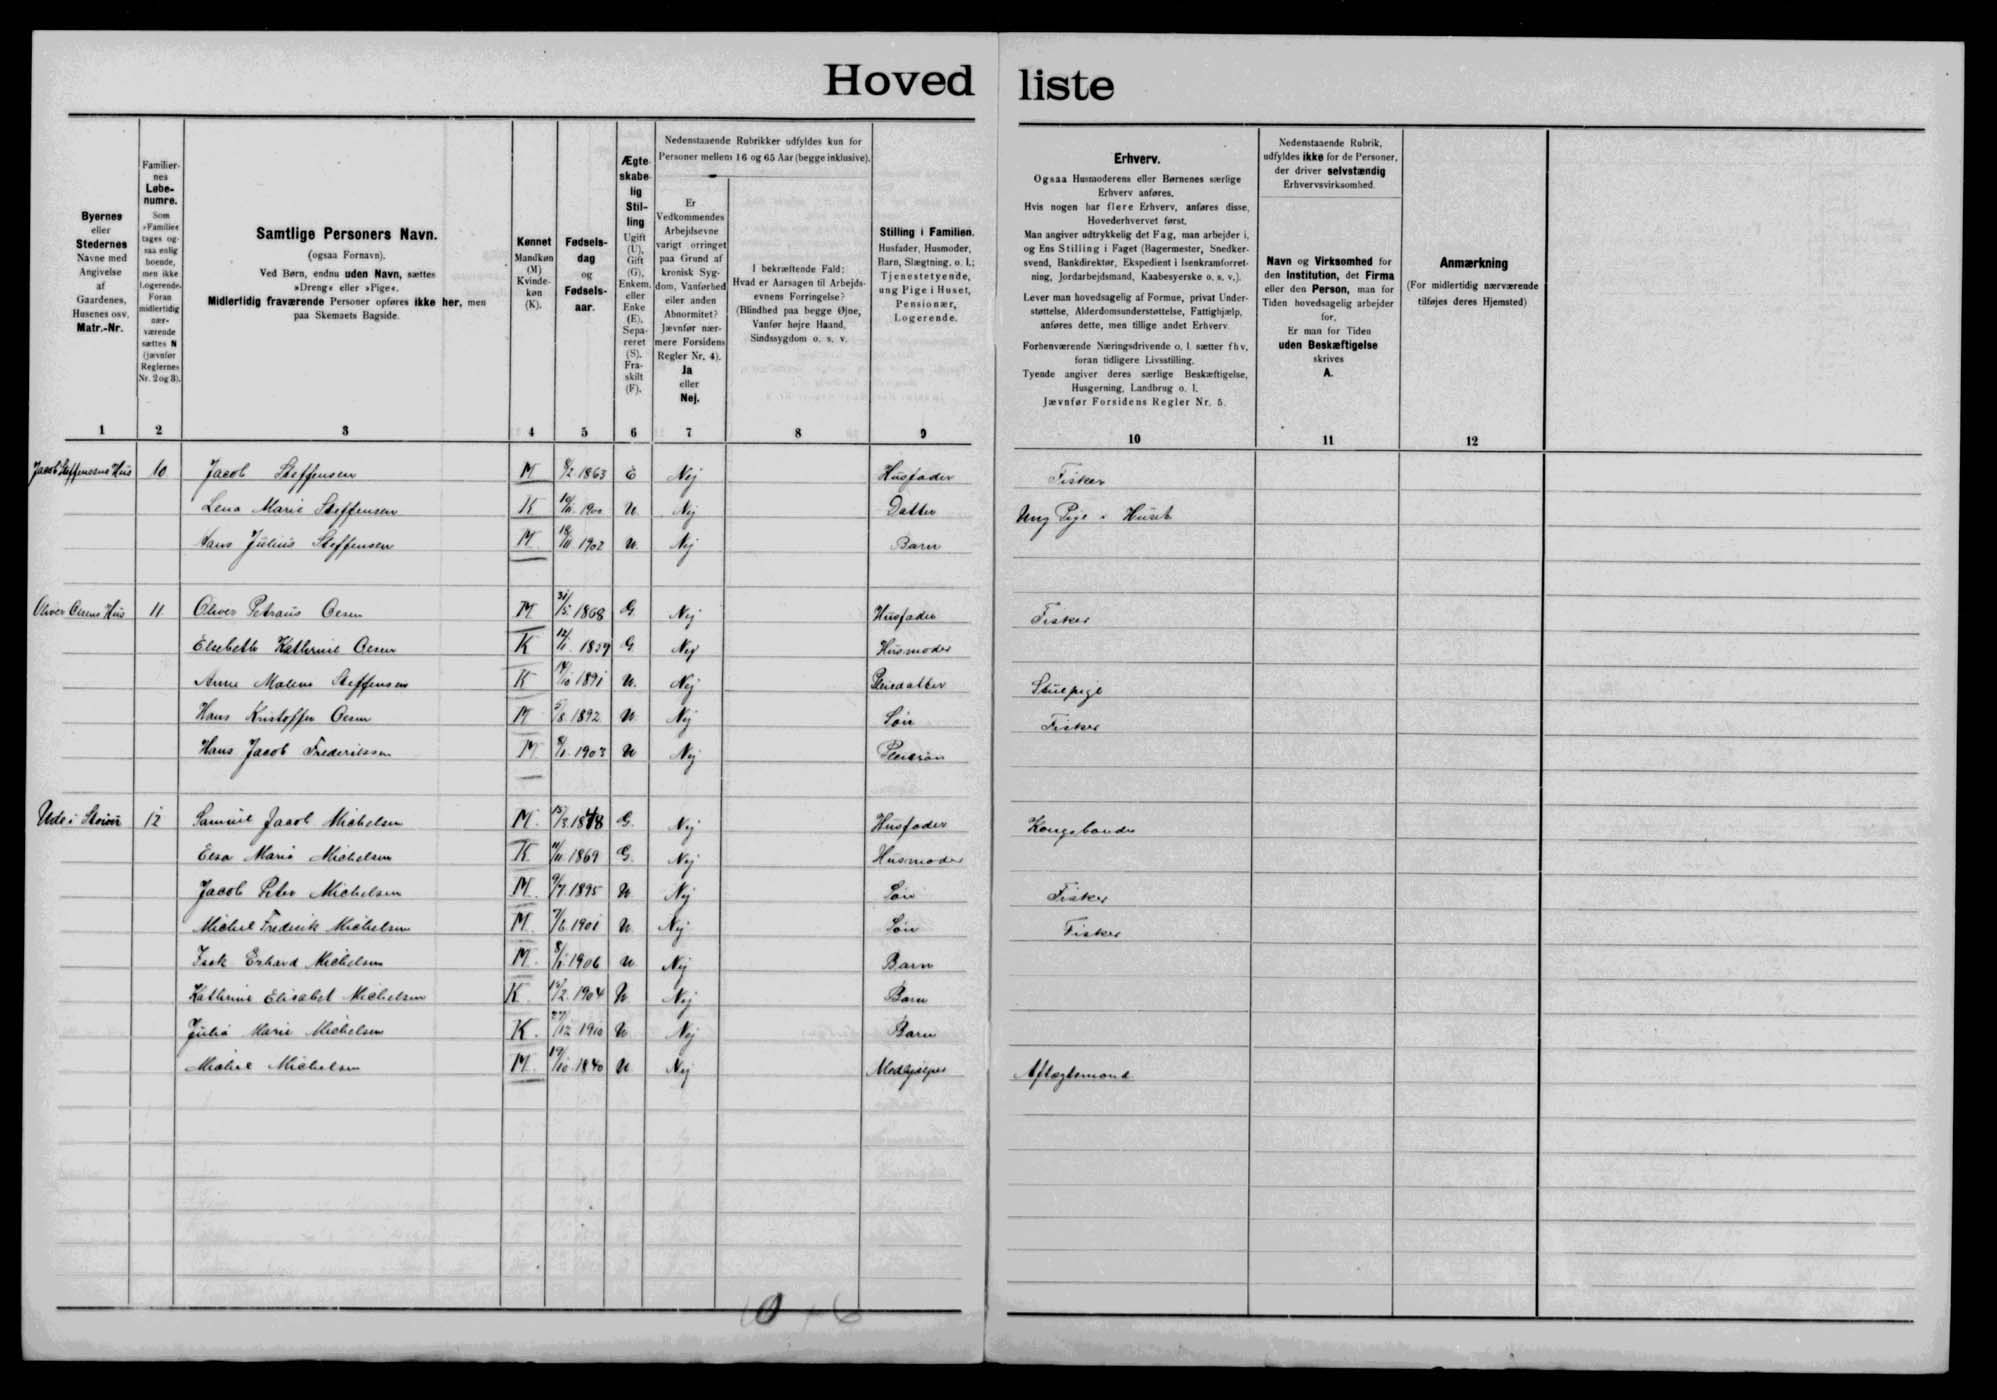 Hoved liste
Byernes
eller
Stedernes
Navne med
Angivelse
af
Gaardenes,
Husenes osv.
Matr.-Nr.
Familier-
nes
Løbe-
numre.
Som
»Familie«
tages og-
saa enlig
boende,
men ikke
Logerende.
Foran
midlertidig
nær-
værende
sættes N
(jævnfør
Reglernes
Nr. 2 og 3).
Samtlige Personers Navn.
(ogsaa Fornavn).
Ved Børn, endnu uden Navn, sættes
»Dreng« eller »Pige«.
Midlertidig fraværende Personer opføres ikke her, men
paa Skemaets Bagside.
Kønnet
Mandkøn
(M)
Kvinde-
køn
(K).
Fødsels-
dag
og
Fødsels-
aar.
Ægte-
skabe-
lig
Stil-
ling
Ugift
(U),
Gift
(G),
Enkem.
eller
Enke
(E),
Sepa-
reret
(S),
Fra-
skilt
(F).
Nedenstaaende Rubrikker udfyldes kun for
Personer mellem 16 og 65 Aar (begge inklusive).
Er
Vedkommendes
Arbejdsevne
varigt forringet
paa Grund af
kronisk Syg-
dom, Vanførhed
eller anden
Abnormitet?
Jævnfør nær-
mere Forsidens
Regler Nr. 4).
Ja
eller
Nej.
I bekræftende Fald:
Hvad er Aarsagen til Arbejds-
evnens Forringelse?
(Blindhed paa begge Øjne,
Vanfør højre Haand,
Sindssygdom o. s. v.
Stilling i Familien.
Husfader, Husmoder,
Barn, Slægtning, o. l.;
Tjenestetyende,
ung Pige i Huset,
Pensionær,
Logerende.
Erhverv.
Ogsaa Husmoderens eller Børnenes særlige
Erhverv anføres.
Hvis nogen har flere Erhverv, anføres disse,
Hovederhvervet først.
Man angiver udtrykkelig det Fag, man arbejder i,
og Ens Stilling i Faget (Bagermester, Snedker-
svend, Bankdirektør, Ekspedient i Isenkramforret-
ning, Jordarbejdsmand, Kaabesyerske o. s. v.).
Lever man hovedsagelig af Formue, privat Under-
støttelse, Alderdomsunderstøttelse, Fattighjælp,
anføres dette, men tillige andet Erhverv.
Forhenværende Næringsdrivende o. l. sætter fhv.
foran tidligere Livsstilling.
Tyende angiver deres særlige Beskæftigelse,
Husgerning, Landbrug o. l.
Jævnfør Forsidens Regler Nr. 5.
Nedenstaaende Rubrik,
udfyldes ikke for de Personer,
der driver selvstændig
Erhvervsvirksomhed.
Navn og Virksomhed for
den Institution, det Firma
eller den Person, man for
Tiden hovedsagelig arbejder
for.
Er man for Tiden
uden Beskæftigelse
skrives
A.
Anmærkning
(For midlertidig nærværende
tilføjes deres Hjemsted)
1 2 3 4 5 6 7 8 9 10 11 12
Jacob Steffensens Hus 10 Jacob Steffensen M 8/2 1863 E Nej Husfader Fisker
Lena Marie Steffensen K 10/11 1900 U. Nej Datter Ung Pige i Huset
Hans Julius Steffensen M 18/11 1902 U. Nej Barn
Oliver Olsens Hus 11 Oliver Petraus Olsen M 31/5 1868 G Nej Husfader Fisker
Elsebeth Kathrine Olsen K 12/1 1859 G Nej Husmoder
Anne Malene Steffensen K 14/10 1891 U. Nej Pleiedatter Stuepige
Hans Kristoffer Olsen M 5/8 1892 U Nej Søn Fisker
Hans Jacob Frederiksen M 8/1 1903 U Nej Pleiesøn
12 Samuel Jacob Michelsen M. 15/3 18 8 G. Nej Husfader Kongsbonde
Elsa Marie Michelsen K 11/11 1869 G. Nej Husmoder
Jacob Peter Michelsen M. 9/7 1895 U Nej Søn Fisker
Michel Fredrik Michelsen M. 7/6 1901 U Nej Søn Fisker
Isak Erhard Michelsen M. 8/1 1906 U Nej Barn
Kathrine Elisabet Michelsen K. 12/2 1904 U Nej Barn
Julia Marie Michelsen K. 27/12 1910 U Nej Barn
Michel Michelsen M 19/10 1840 U Nej Medhjelper Aftægtsmand